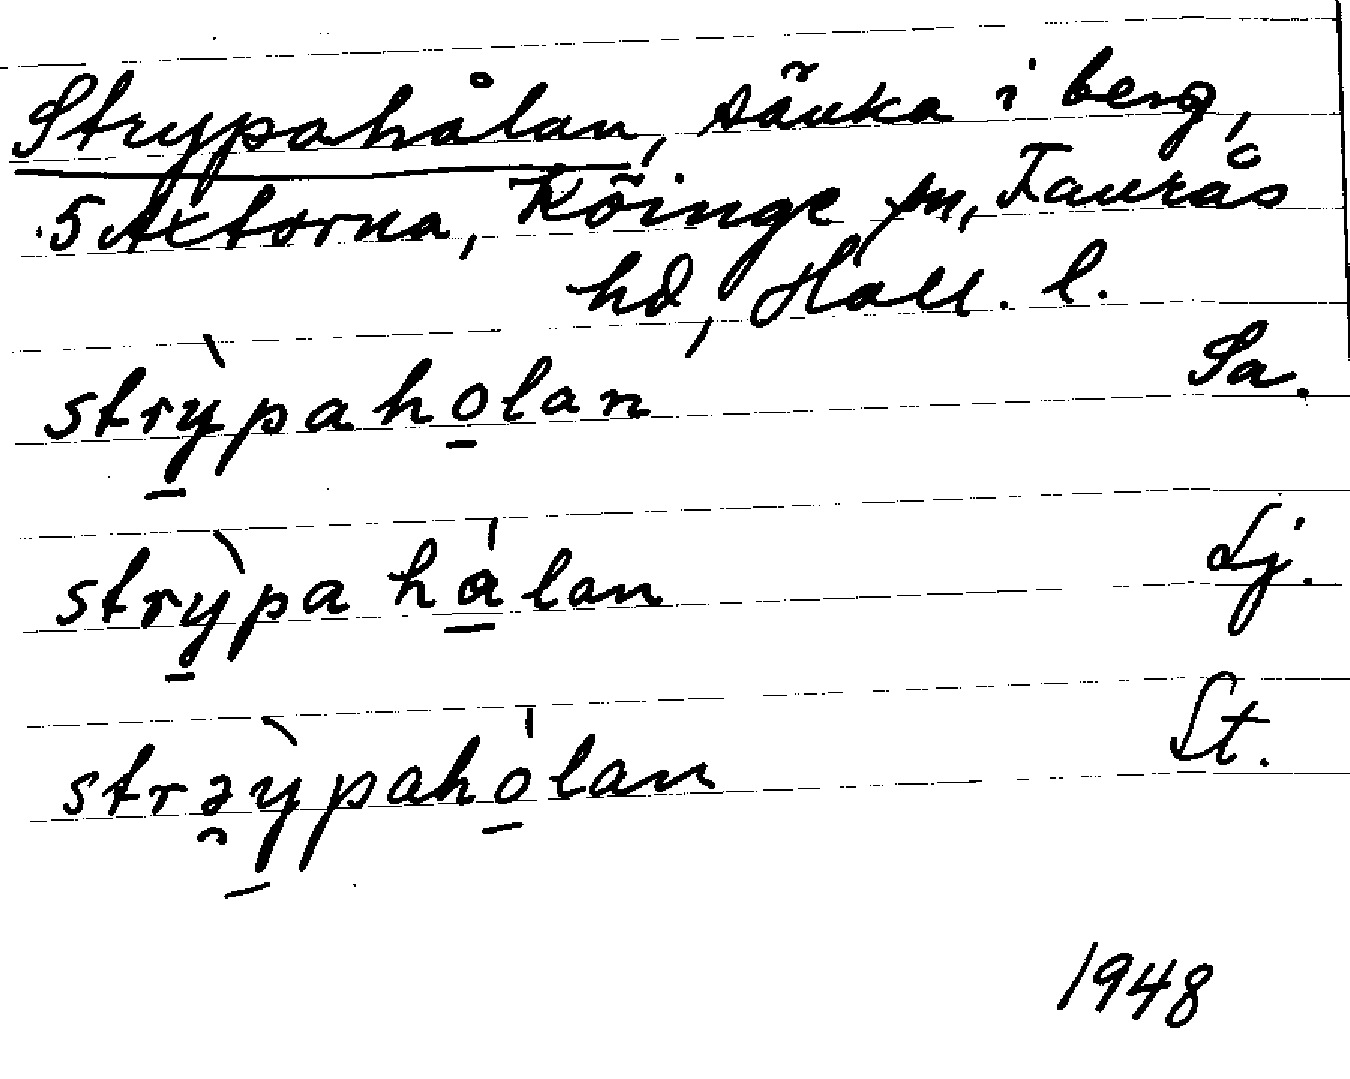 Strypahålan, sänka i berg,
5 Axtorna, Köinge sn, Faurås
hd, Hall. l.
strỳpaholan Sa.
strỳpa hålan Lj.
strəỳpaholan St.
1948